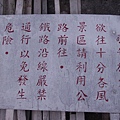 欲往十分各風
景區請利用公
路前往。
鐵路沿線嚴禁
通行以免發生
危險。